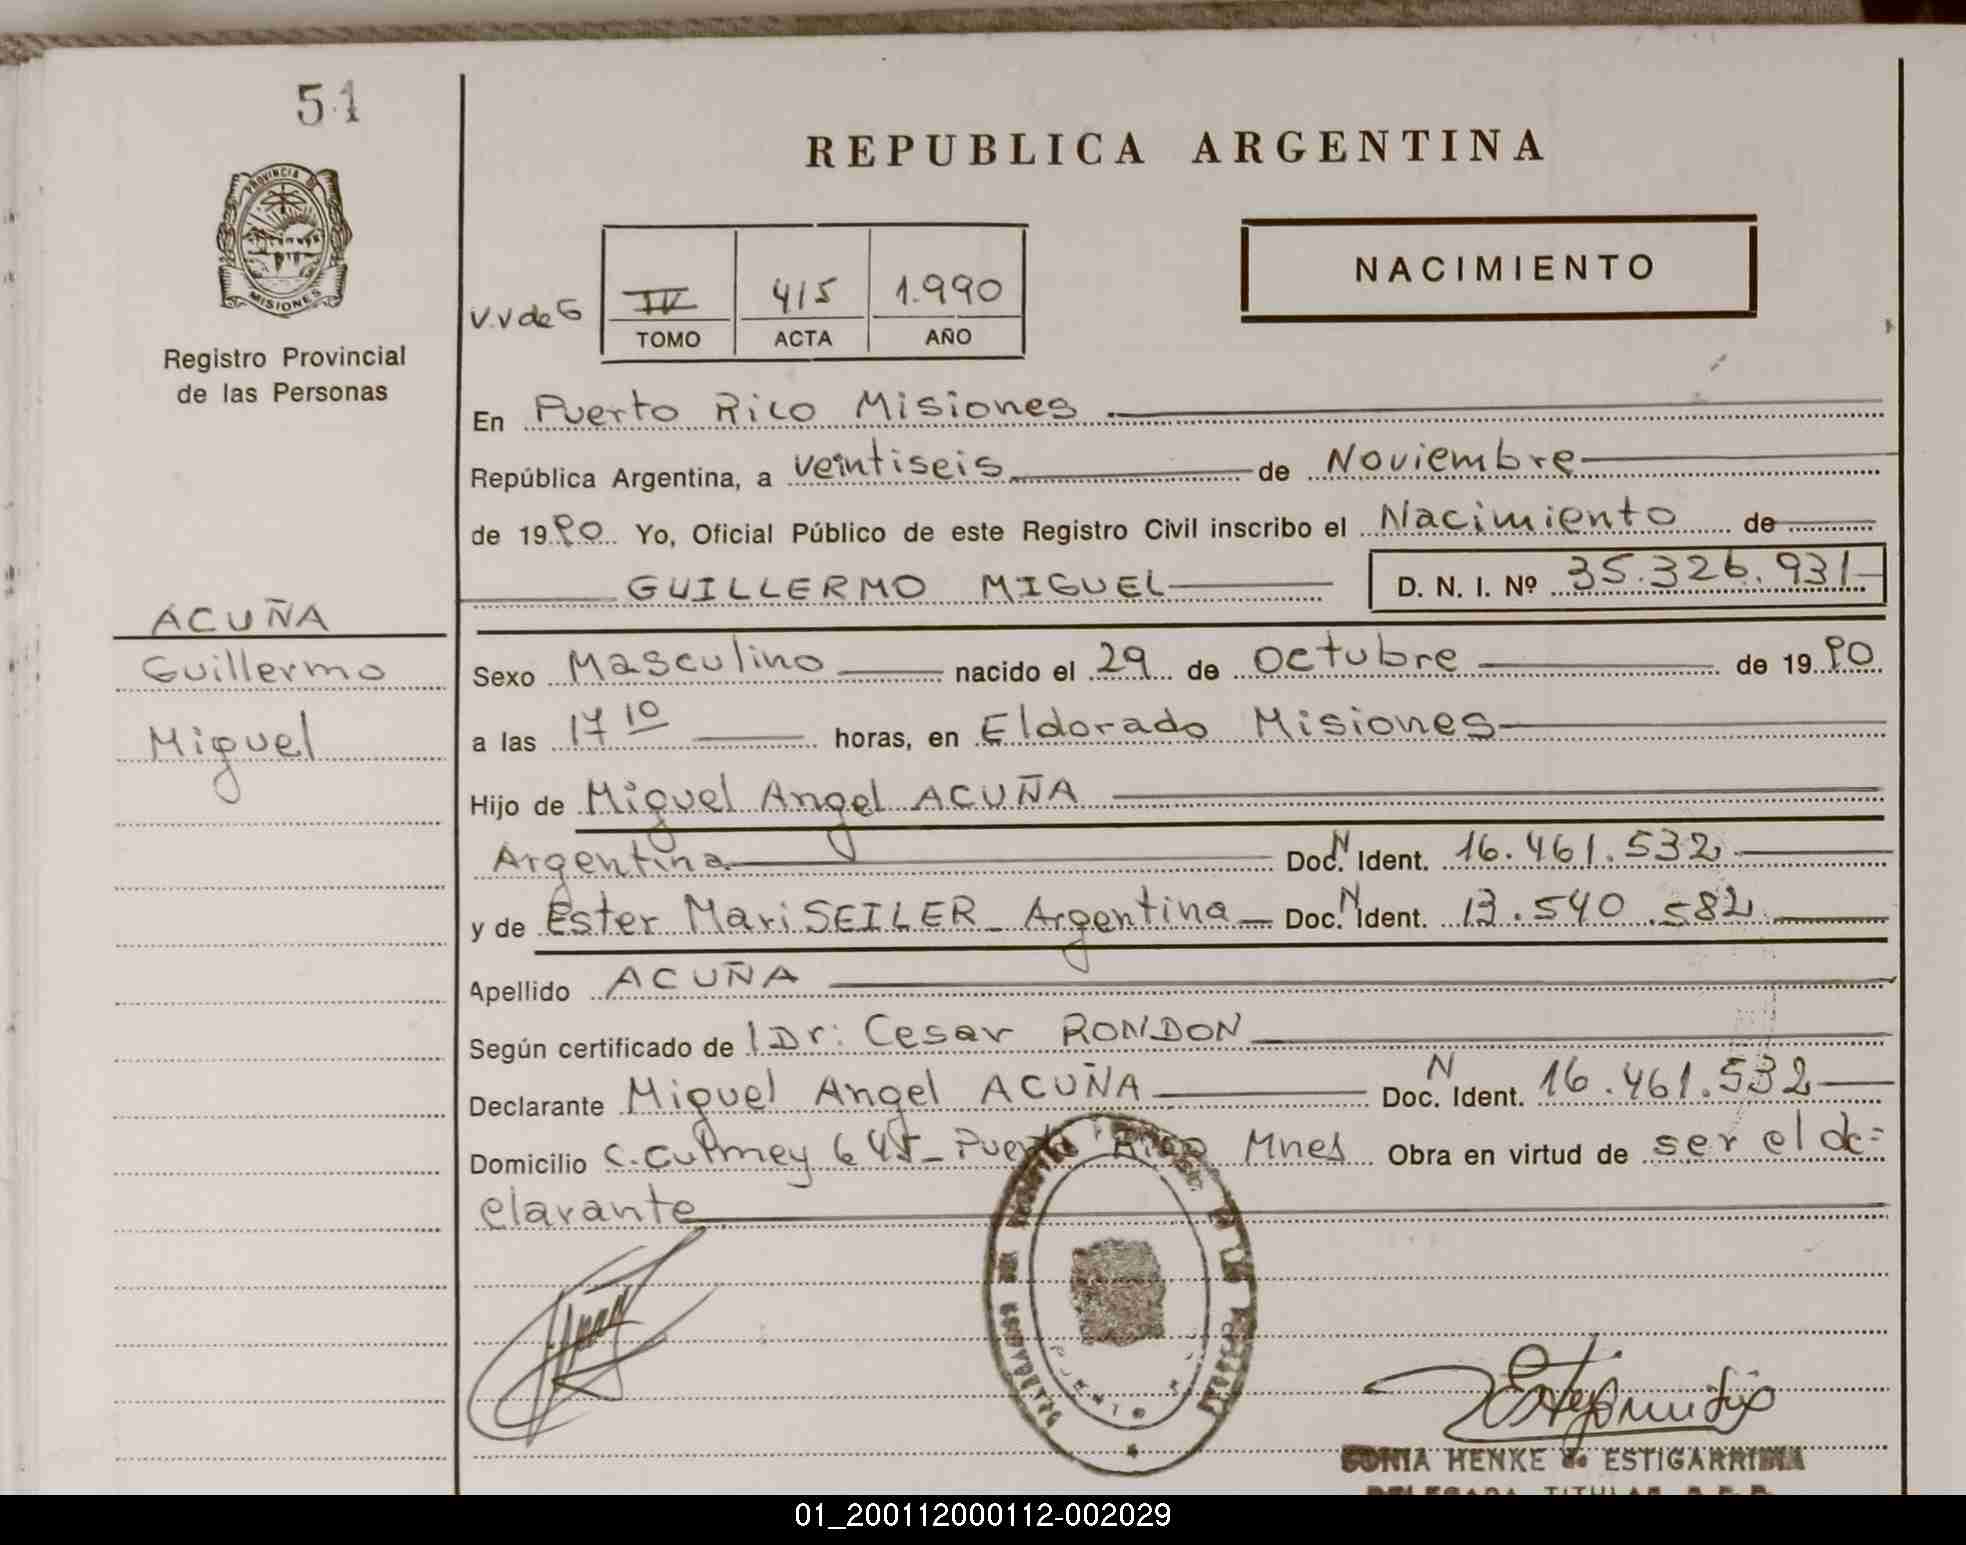 51
REPUBLICA ARGENTINA
PROVINCIA DE
MISIONES
Registro Provincial
de las Personas
NACIMIENTO
V.V de G
IV 415 1.990
TOMO ACTA AÑO
En Puerto Rico Misiones
República Argentina, a veintiseis de Noviembre
de 1990 Yo, Oficial Público de este Registro Civil inscribo el Nacimiento de
GUILLERMO MIGUEL D. N. I. Nº 35.326.931
ACUÑA
Guillermo
Miguel
Sexo Masculino nacido el 29 de Octubre de 1990
a las 17 10 horas, en Eldorado Misiones
Hijo de Miguel Angel ACUÑA
Argentina Doc. N Ident. 16.461.532
y de Ester Mari SEILER Argentina Doc. N Ident. 13.540.582
Apellido ACUÑA
Según certificado de Dr: Cesar RONDON
Declarante Miguel Angel ACUÑA Doc. N Ident. 16.461.532
Domicilio C. Culmey 645 - Puerto Rico Mnes Obra en virtud de ser el de=
clarante
SONIA HENKE de ESTIGARRIBIA
DELEGADA TITULAR
01_200112000112-002029